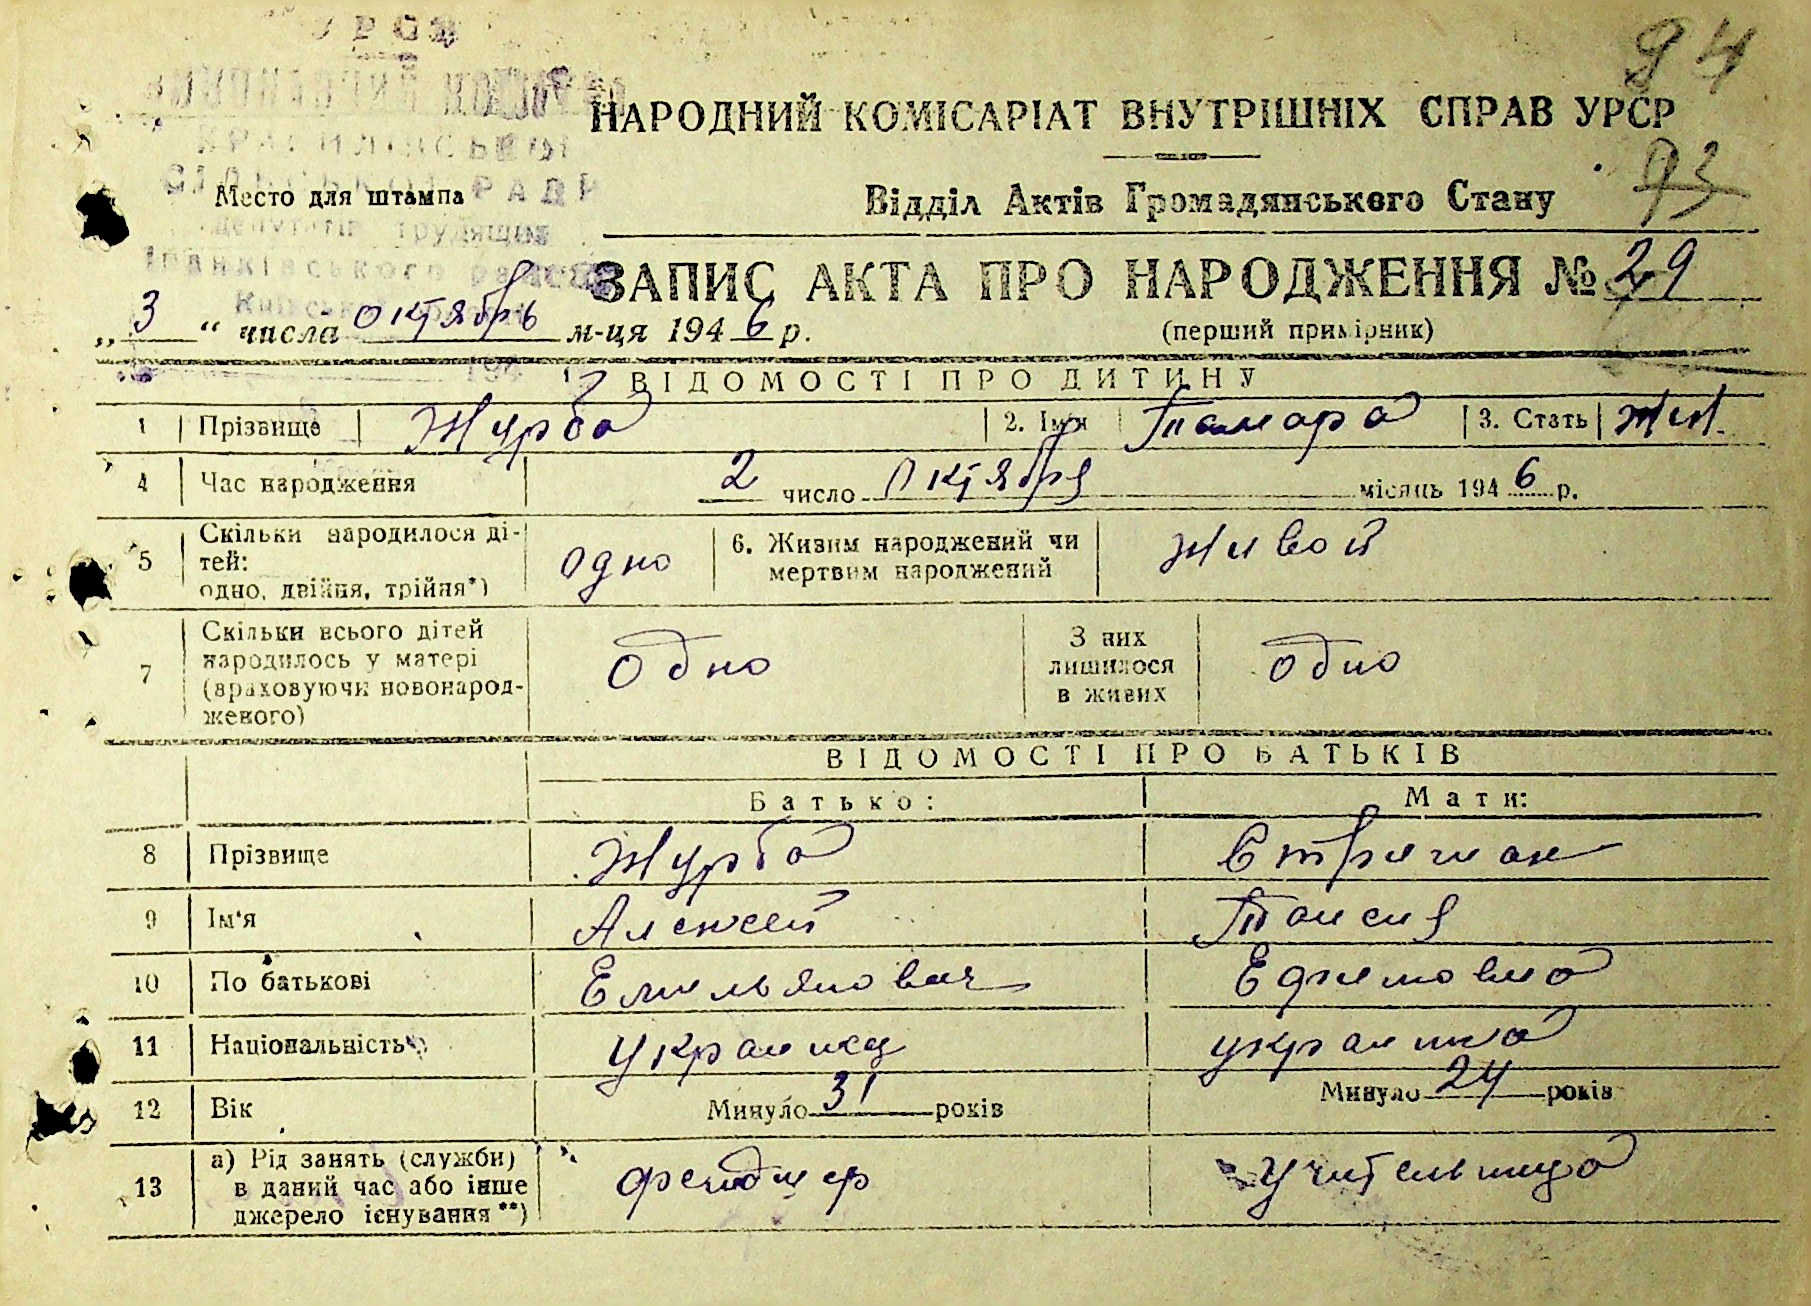 УРСР
94
НАРОДНИЙ КОМІСАРІАТ ВНУТРІШНІХ СПРАВ УРСР
93
Место для штампа
Відділ Актів Громадянського Стану
депутатів трудящих
Іванківського району
ЗАПИС АКТА ПРО НАРОДЖЕННЯ № 29
„ 3 “ числа октябрь м-ця 1946 р.
(перший примірник)
194
ВІДОМОСТІ ПРО ДИТИНУ
1 Прізвище Журба 2. Ім'я Тамара 3. Стать жен.
4 Час народження 2 число Октября місяць 1946 р.
5 Скільки народилося ді-
тей:
одно, двійня, трійня*) одно 6. Живим народжений чи
мертвим народжений живой
7 Скільки всього дітей
народилось у матері
(враховуючи новонарод-
женого) одно З них
лишилося
в живих одно
ВІДОМОСТІ ПРО БАТЬКІВ
Батько: Мати:
8 Прізвище Журба
9 Ім'я Алексей Таисия
10 По батькові Емельянович Ефимовна
11 Національність украинец украинка
12 Вік Минуло 31 років Минуло 24 років
13 а) Рід занять (служби)
в даний час або інше
джерело існування**) фельдшер учительница